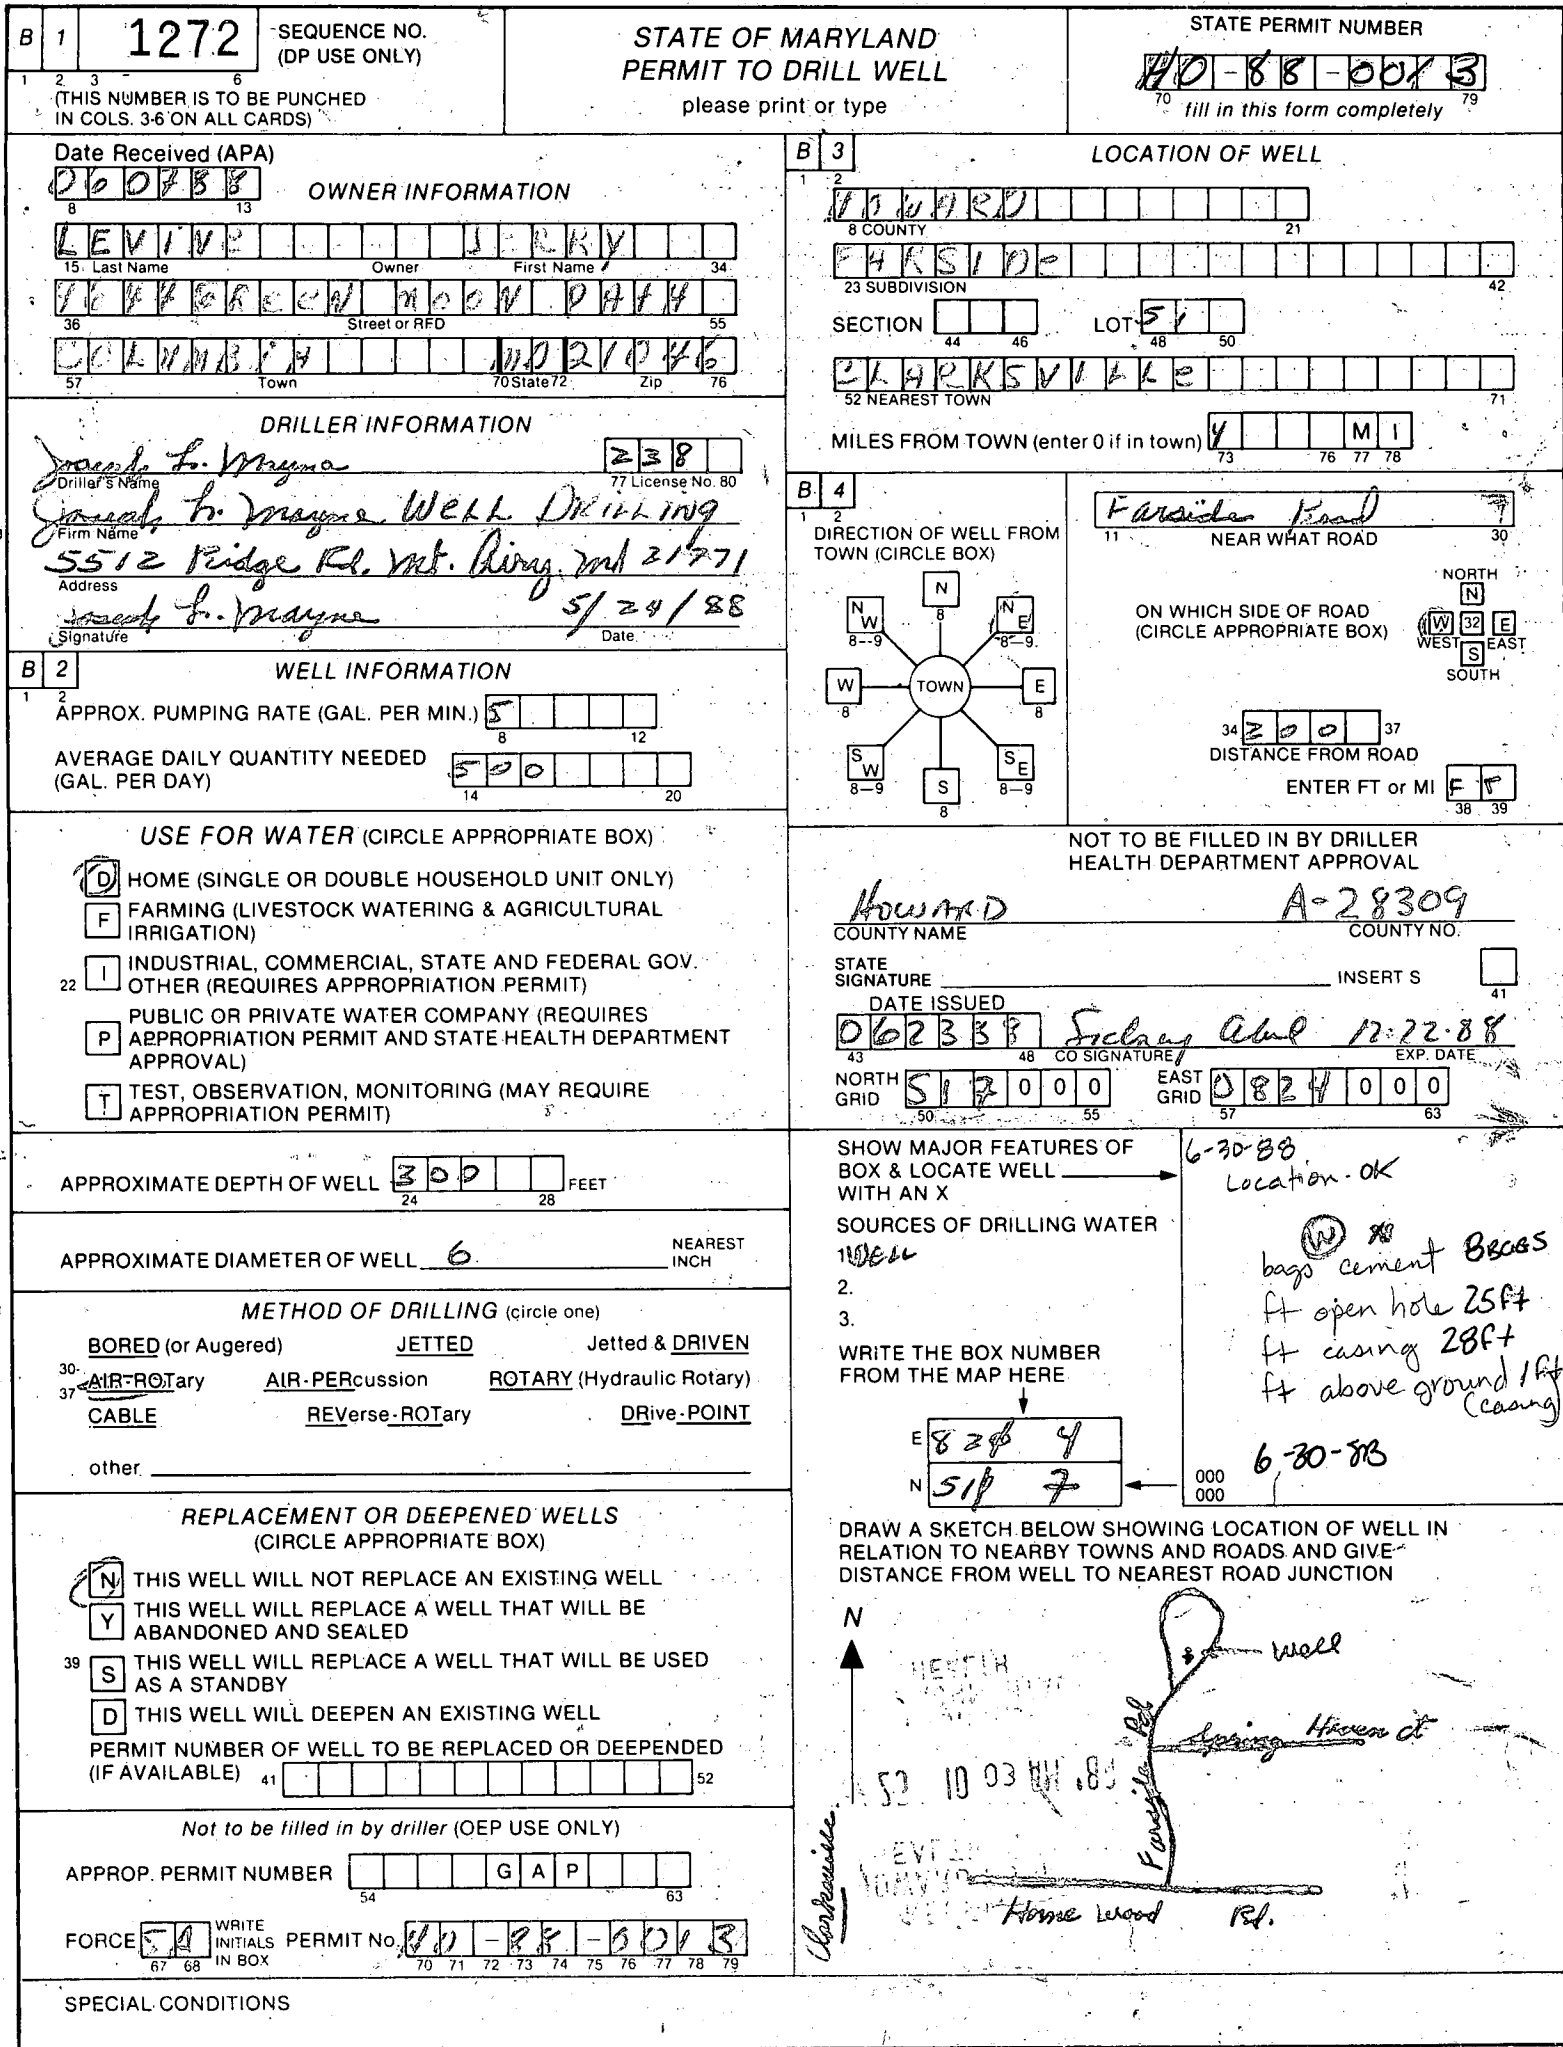 B 1 1272 SEQUENCE NO. (DP USE ONLY)
1 2 3 6
(THIS NUMBER IS TO BE PUNCHED
IN COLS. 3-6 ON ALL CARDS)
STATE OF MARYLAND
PERMIT TO DRILL WELL
please print or type
STATE PERMIT NUMBER
HO-88-0013
70 79
fill in this form completely
Date Received (APA)
060788
8 13
OWNER INFORMATION
LEVINE JERRY
15 Last Name Owner First Name 34
GREEN MOON PATH
36 Street or RFD 55
COLUMBIA MD 21046
57 Town 70 State 72 Zip 76
DRILLER INFORMATION
Joseph L. Mayne 238
Driller's Name 77 License No. 80
Joseph L. Mayne WELL DRILLING
Firm Name
5512 Ridge Rd. Mt. Airy, Md 21771
Address
Joseph L. Mayne 5/24/88
Signature Date
B 2 WELL INFORMATION
1 2
APPROX. PUMPING RATE (GAL. PER MIN.) 5
8 12
AVERAGE DAILY QUANTITY NEEDED
(GAL. PER DAY) 500
14 20
USE FOR WATER (CIRCLE APPROPRIATE BOX)
D HOME (SINGLE OR DOUBLE HOUSEHOLD UNIT ONLY)
F FARMING (LIVESTOCK WATERING & AGRICULTURAL
IRRIGATION)
22 I INDUSTRIAL, COMMERCIAL, STATE AND FEDERAL GOV.
OTHER (REQUIRES APPROPRIATION PERMIT)
P PUBLIC OR PRIVATE WATER COMPANY (REQUIRES
APPROPRIATION PERMIT AND STATE HEALTH DEPARTMENT
APPROVAL)
T TEST, OBSERVATION, MONITORING (MAY REQUIRE
APPROPRIATION PERMIT)
APPROXIMATE DEPTH OF WELL 300 FEET
24 28
APPROXIMATE DIAMETER OF WELL 6 NEAREST INCH
METHOD OF DRILLING (circle one)
BORED (or Augered) JETTED Jetted & DRIVEN
30-37 AIR-ROTary AIR-PERcussion ROTARY (Hydraulic Rotary)
CABLE REVerse-ROTary DRive-POINT
other
REPLACEMENT OR DEEPENED WELLS
(CIRCLE APPROPRIATE BOX)
N THIS WELL WILL NOT REPLACE AN EXISTING WELL
Y THIS WELL WILL REPLACE A WELL THAT WILL BE
ABANDONED AND SEALED
39 S THIS WELL WILL REPLACE A WELL THAT WILL BE USED
AS A STANDBY
D THIS WELL WILL DEEPEN AN EXISTING WELL
PERMIT NUMBER OF WELL TO BE REPLACED OR DEEPENDED
(IF AVAILABLE) 41 52
Not to be filled in by driller (OEP USE ONLY)
APPROP. PERMIT NUMBER GAP
54 63
FORCE SA WRITE INITIALS IN BOX PERMIT No. HO-88-0013
67 68 70 71 72 73 74 75 76 77 78 79
SPECIAL CONDITIONS
B 3 LOCATION OF WELL
1 2
HOWARD
8 COUNTY 21
FARSIDE
23 SUBDIVISION 42
SECTION LOT 51
44 46 48 50
CLARKSVILLE
52 NEAREST TOWN 71
MILES FROM TOWN (enter 0 if in town) 4 MI
73 76 77 78
B 4
1 2
DIRECTION OF WELL FROM
TOWN (CIRCLE BOX)
N
8
NW NE
8-9 8-9
W TOWN E
8 8
SW SE
8-9 8-9
S
8
Farside Road
11 NEAR WHAT ROAD 30
ON WHICH SIDE OF ROAD
(CIRCLE APPROPRIATE BOX)
NORTH
N
W 32 E
WEST EAST
S
SOUTH
34 200 37
DISTANCE FROM ROAD
ENTER FT or MI FT
38 39
NOT TO BE FILLED IN BY DRILLER
HEALTH DEPARTMENT APPROVAL
HOWARD A-28309
COUNTY NAME COUNTY NO.
STATE
SIGNATURE INSERT S
41
DATE ISSUED
062388 12-22-88
43 48 CO SIGNATURE EXP. DATE
NORTH GRID 517000 EAST GRID 0824000
50 55 57 63
SHOW MAJOR FEATURES OF
BOX & LOCATE WELL
WITH AN X
SOURCES OF DRILLING WATER
1. WELL
2.
3.
WRITE THE BOX NUMBER
FROM THE MAP HERE
E 820 4
N 510 7
000
000
6-30-88
Location-OK
W
bags cement 8BAGS
ft open hole 25ft
ft casing 28ft
ft above ground 1ft
(casing)
6-30-88
DRAW A SKETCH BELOW SHOWING LOCATION OF WELL IN
RELATION TO NEARBY TOWNS AND ROADS AND GIVE
DISTANCE FROM WELL TO NEAREST ROAD JUNCTION
N
well
Spring Haven ct
Farside Rd
Clarksville
Home wood Rd.